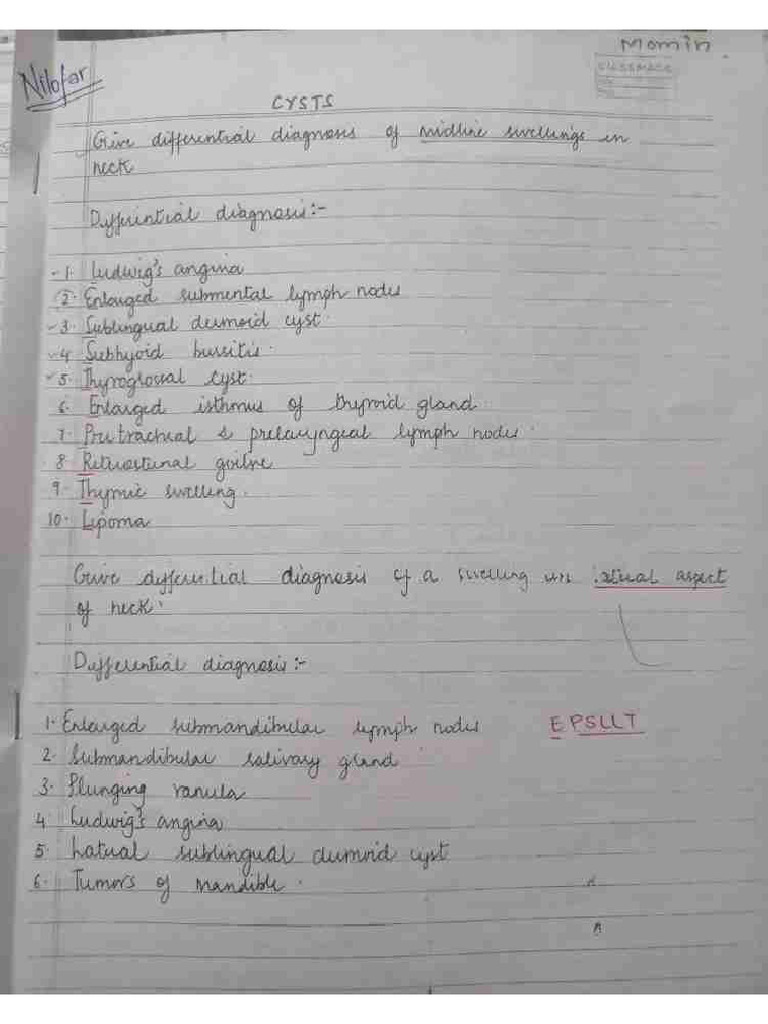 Nilofar
Momin
CLASSMATE
CYSTS
Give differential diagnosis of midline swellings in
neck
Differential diagnosis:-
1. Ludwig's angina
2. Enlarged submental lymph nodes
3. Sublingual dermoid cyst.
4 Subhyoid bursitis.
5. Thyroglossal cyst.
6. Enlarged isthmus of thyroid gland.
7. Pretracheal & prelaryngeal lymph nodes.
8 Retrosternal goitre
9. Thymic swelling.
10. Lipoma
Give differential diagnosis of a swelling in lateral aspect
of neck.
Differential diagnosis:-
1. Enlarged submandibular lymph nodes EPSLLT
2. Submandibular salivary gland
3. Plunging ranula
4 Ludwig's angina
5 Lateral sublingual dermoid cyst
6. Tumors of mandible.